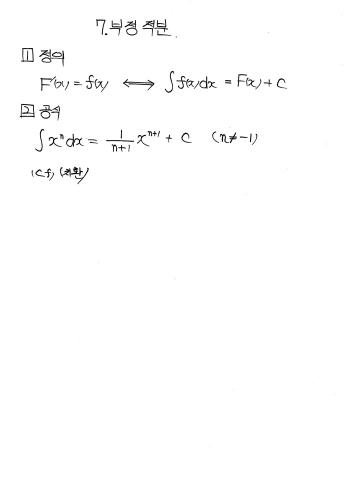 7. 부정 적분.
1 정의
F'(x) = f(x) ⟺ ∫f(x)dx = F(x) + C
2 공식
∫xⁿdx = 1/(n+1) xⁿ⁺¹ + C (n≠-1)
(cf) (치환)